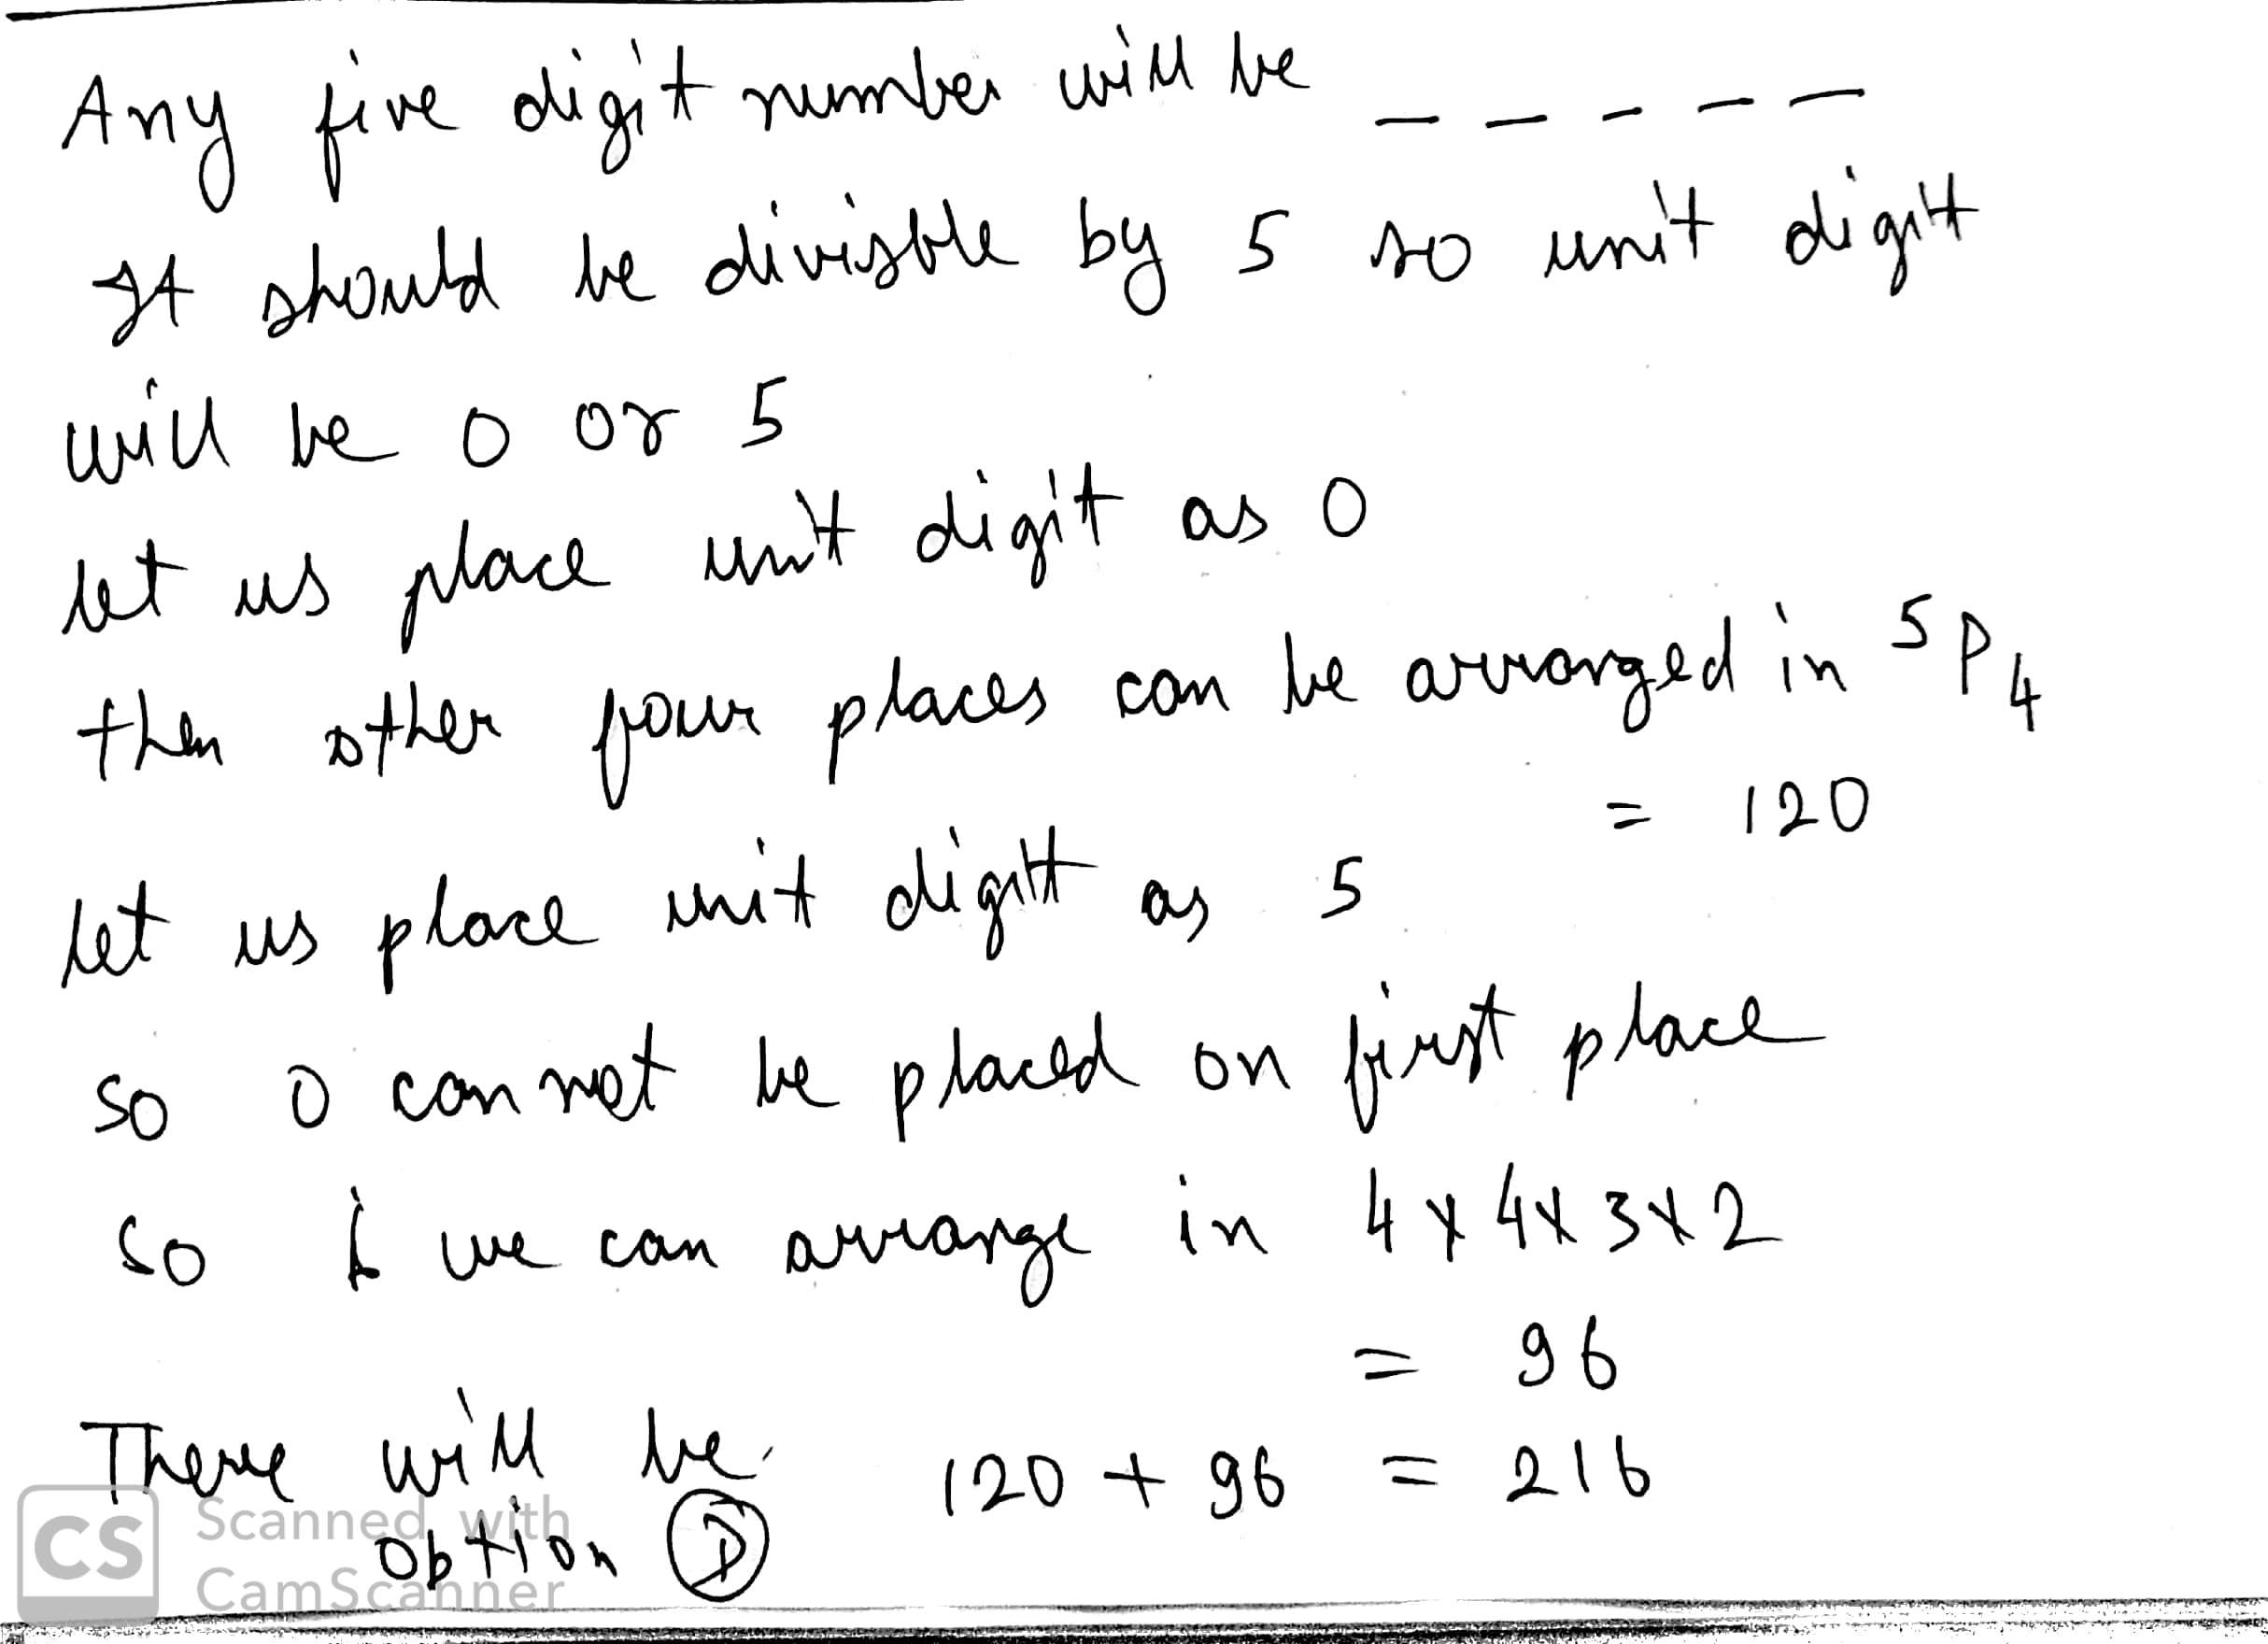 Any five digit number will be _ _ _ _ _
It should be divisble by 5 so unit digit
will be 0 or 5
let us place unit digit as 0
then other four places can be arranged in ⁵P₄
= 120
let us place unit digit as 5
so 0 can not be placed on first place
so we can arrange in 4 x 4 x 3 x 2
= 96
There will be 120 + 96 = 216
Obtion D
CS Scanned with
CamScanner